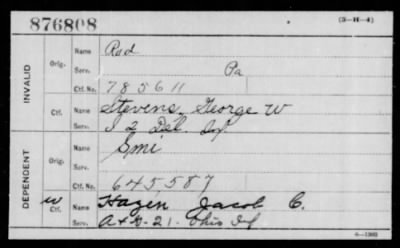 876808
(3-H-4)
INVALID
Orig.
Name
Rod
Serv.
Pa
Ctf. No.
785611
Ctf.
Name
Stevens, George W
Serv.
I 2 Del. Inf
DEPENDENT
Orig.
Name
Smi
Serv.
Ctf. No.
645,587
W
Ctf.
Name
Hazen Jacob C.
Serv.
A & G - 21 - Ohio Inf